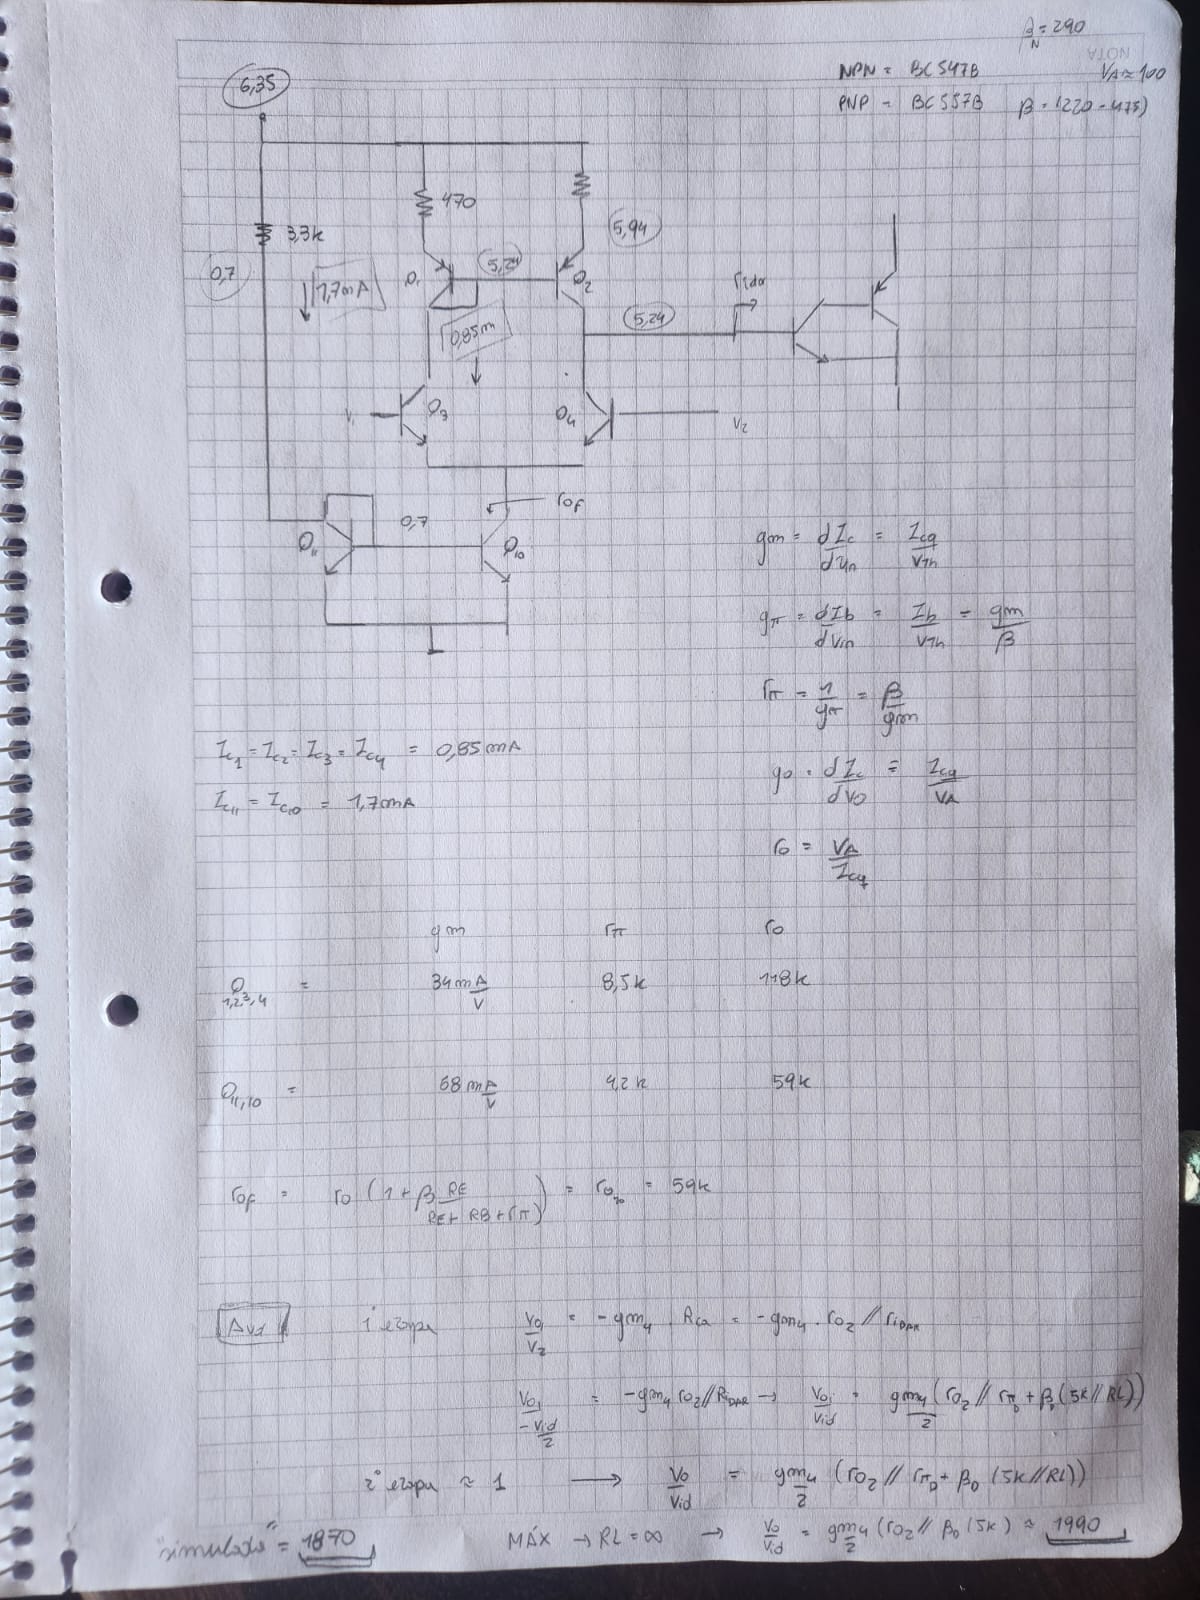 β = 290
N
NOTA
NPN = BC547B
VA ≈ 100
PNP = BC557B β = (220 - 475)
6,35
3,3k
470
5,94
0,7
1,7mA
Q1
5,24
Q2
0,85m
5,24
V1
Q3
Q4
V2
rof
Q11
0,7
Q10
gm = dIc/dvin = Icq/VTh
gπ = dIb/dvin = Ib/VTh = gm/β
rπ = 1/gπ = β/gm
Ic1 = Ic2 = Ic3 = Ic4 = 0,85mA
Ic11 = Ic10 = 1,7mA
go = dIc/dVo = Icq/VA
ro = VA/Icq
gm rπ ro
Q1,2,3,4 = 34 mA/V 8,5k 118k
Q11,10 = 68 mA/V 4,2k 59k
rof = ro (1 + β RE/(RE + RB + rπ)) = ro10 = 59k
Av1 1° etapa vo1/v2 = -gm4 Rca = -gm4 . ro2 // riDAR
vo1/(-vid/2) = -gm4 ro2 // RiDAR → vo1/vid = gm4/2 (ro2 // rπD + βD (5k // RL))
2° etapa ≈ 1 → vo/vid = gm4/2 (ro2 // rπD + βD (5k // RL))
"simulato" = 1870
MÁX → RL = ∞ → vo/vid = gm4/2 (ro2 // βD (5k) ≈ 1990